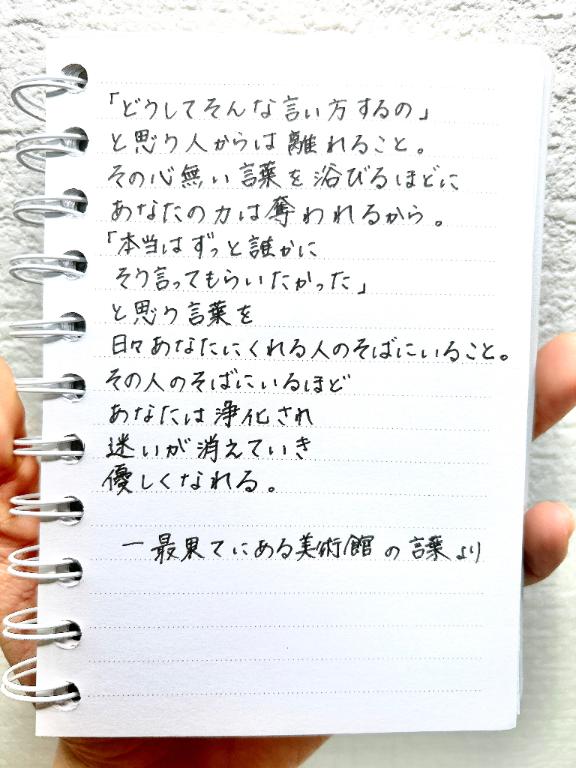 「どうしてそんな言い方するの」
と思う人からは離れること。
その心無い言葉を浴びるほどに
あなたの力は奪われるから。
「本当はずっと誰かに
そう言ってもらいたかった」
と思う言葉を
日々あなたにくれる人のそばにいること。
その人のそばにいるほど
あなたは浄化され
迷いが消えていき
優しくなれる。
ー最果てにある美術館の言葉より